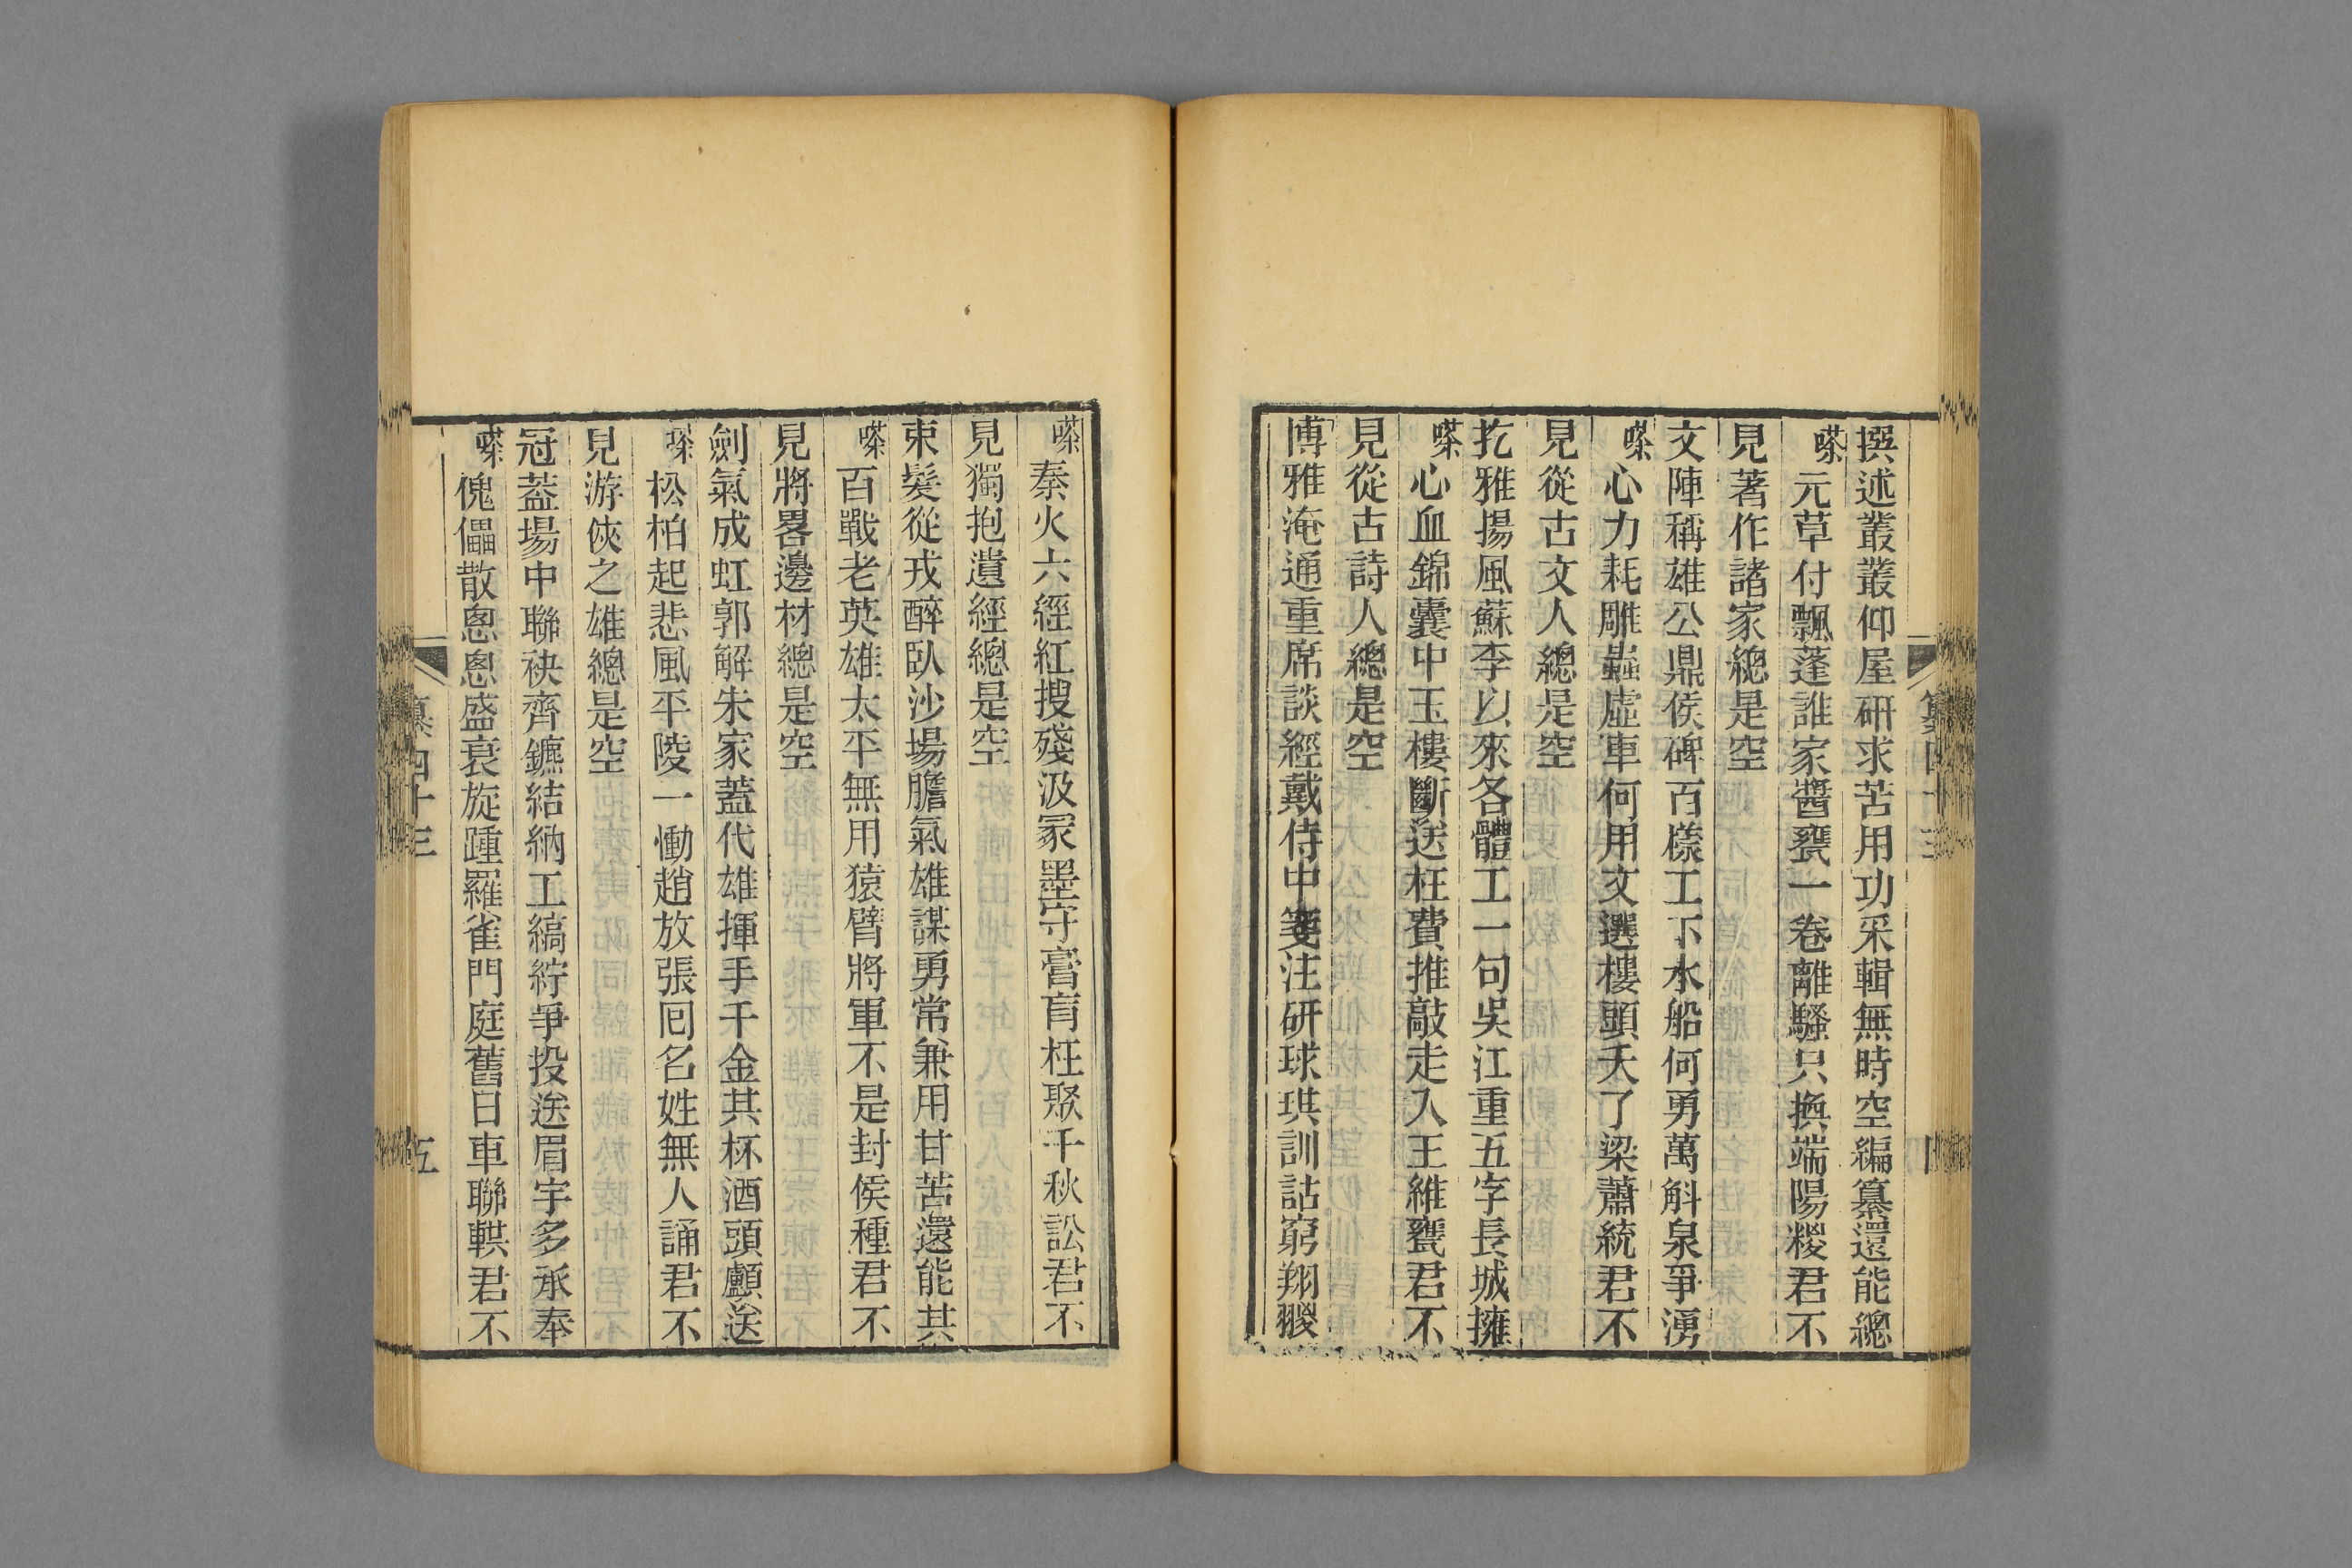 撰述叢叢仰屋研求苦用功采輯無時空編纂還能總
嗏元草付飄蓬誰家醬甕一卷離騷只換端陽糉君不
見著作諸家總是空
文陣稱雄公鼎侯碑百㨾工下水船何勇萬斛泉爭湧
嗏心力耗雕蟲虛車何用文選樓頭夭了梁蕭統君不
見從古文人總是空
扢雅揚風蘇李以來各體工一句吳江重五字長城擁
嗏心血錦囊中玉樓斷送枉費推敲走入王維甕君不
見從古詩人總是空
博雅淹通重席談經戴侍中箋注研球琪訓詁窮翔翪
纂四十三
嗏秦火六經紅搜殘汲冡墨守膏肓枉聚千秋訟君不
見獨抱遺經總是空
束髮從戎醉臥沙場膽氣雄謀勇常兼用甘苦還能共
嗏百戰老英雄太平無用猿臂將軍不是封侯種君不
見將畧邊材總是空
劍氣成虹郭解朱家蓋代雄揮手千金其杯酒頭顱送
嗏松柏起悲風平陵一慟趙放張回名姓無人誦君不
見游俠之雄總是空
冠蓋場中聯袂齊鑣結納工縞紵爭投送眉宇多承奉
嗏傀儡散悤悤盛衰旋踵羅雀門庭舊日車聯䡗君不
纂四十三
五